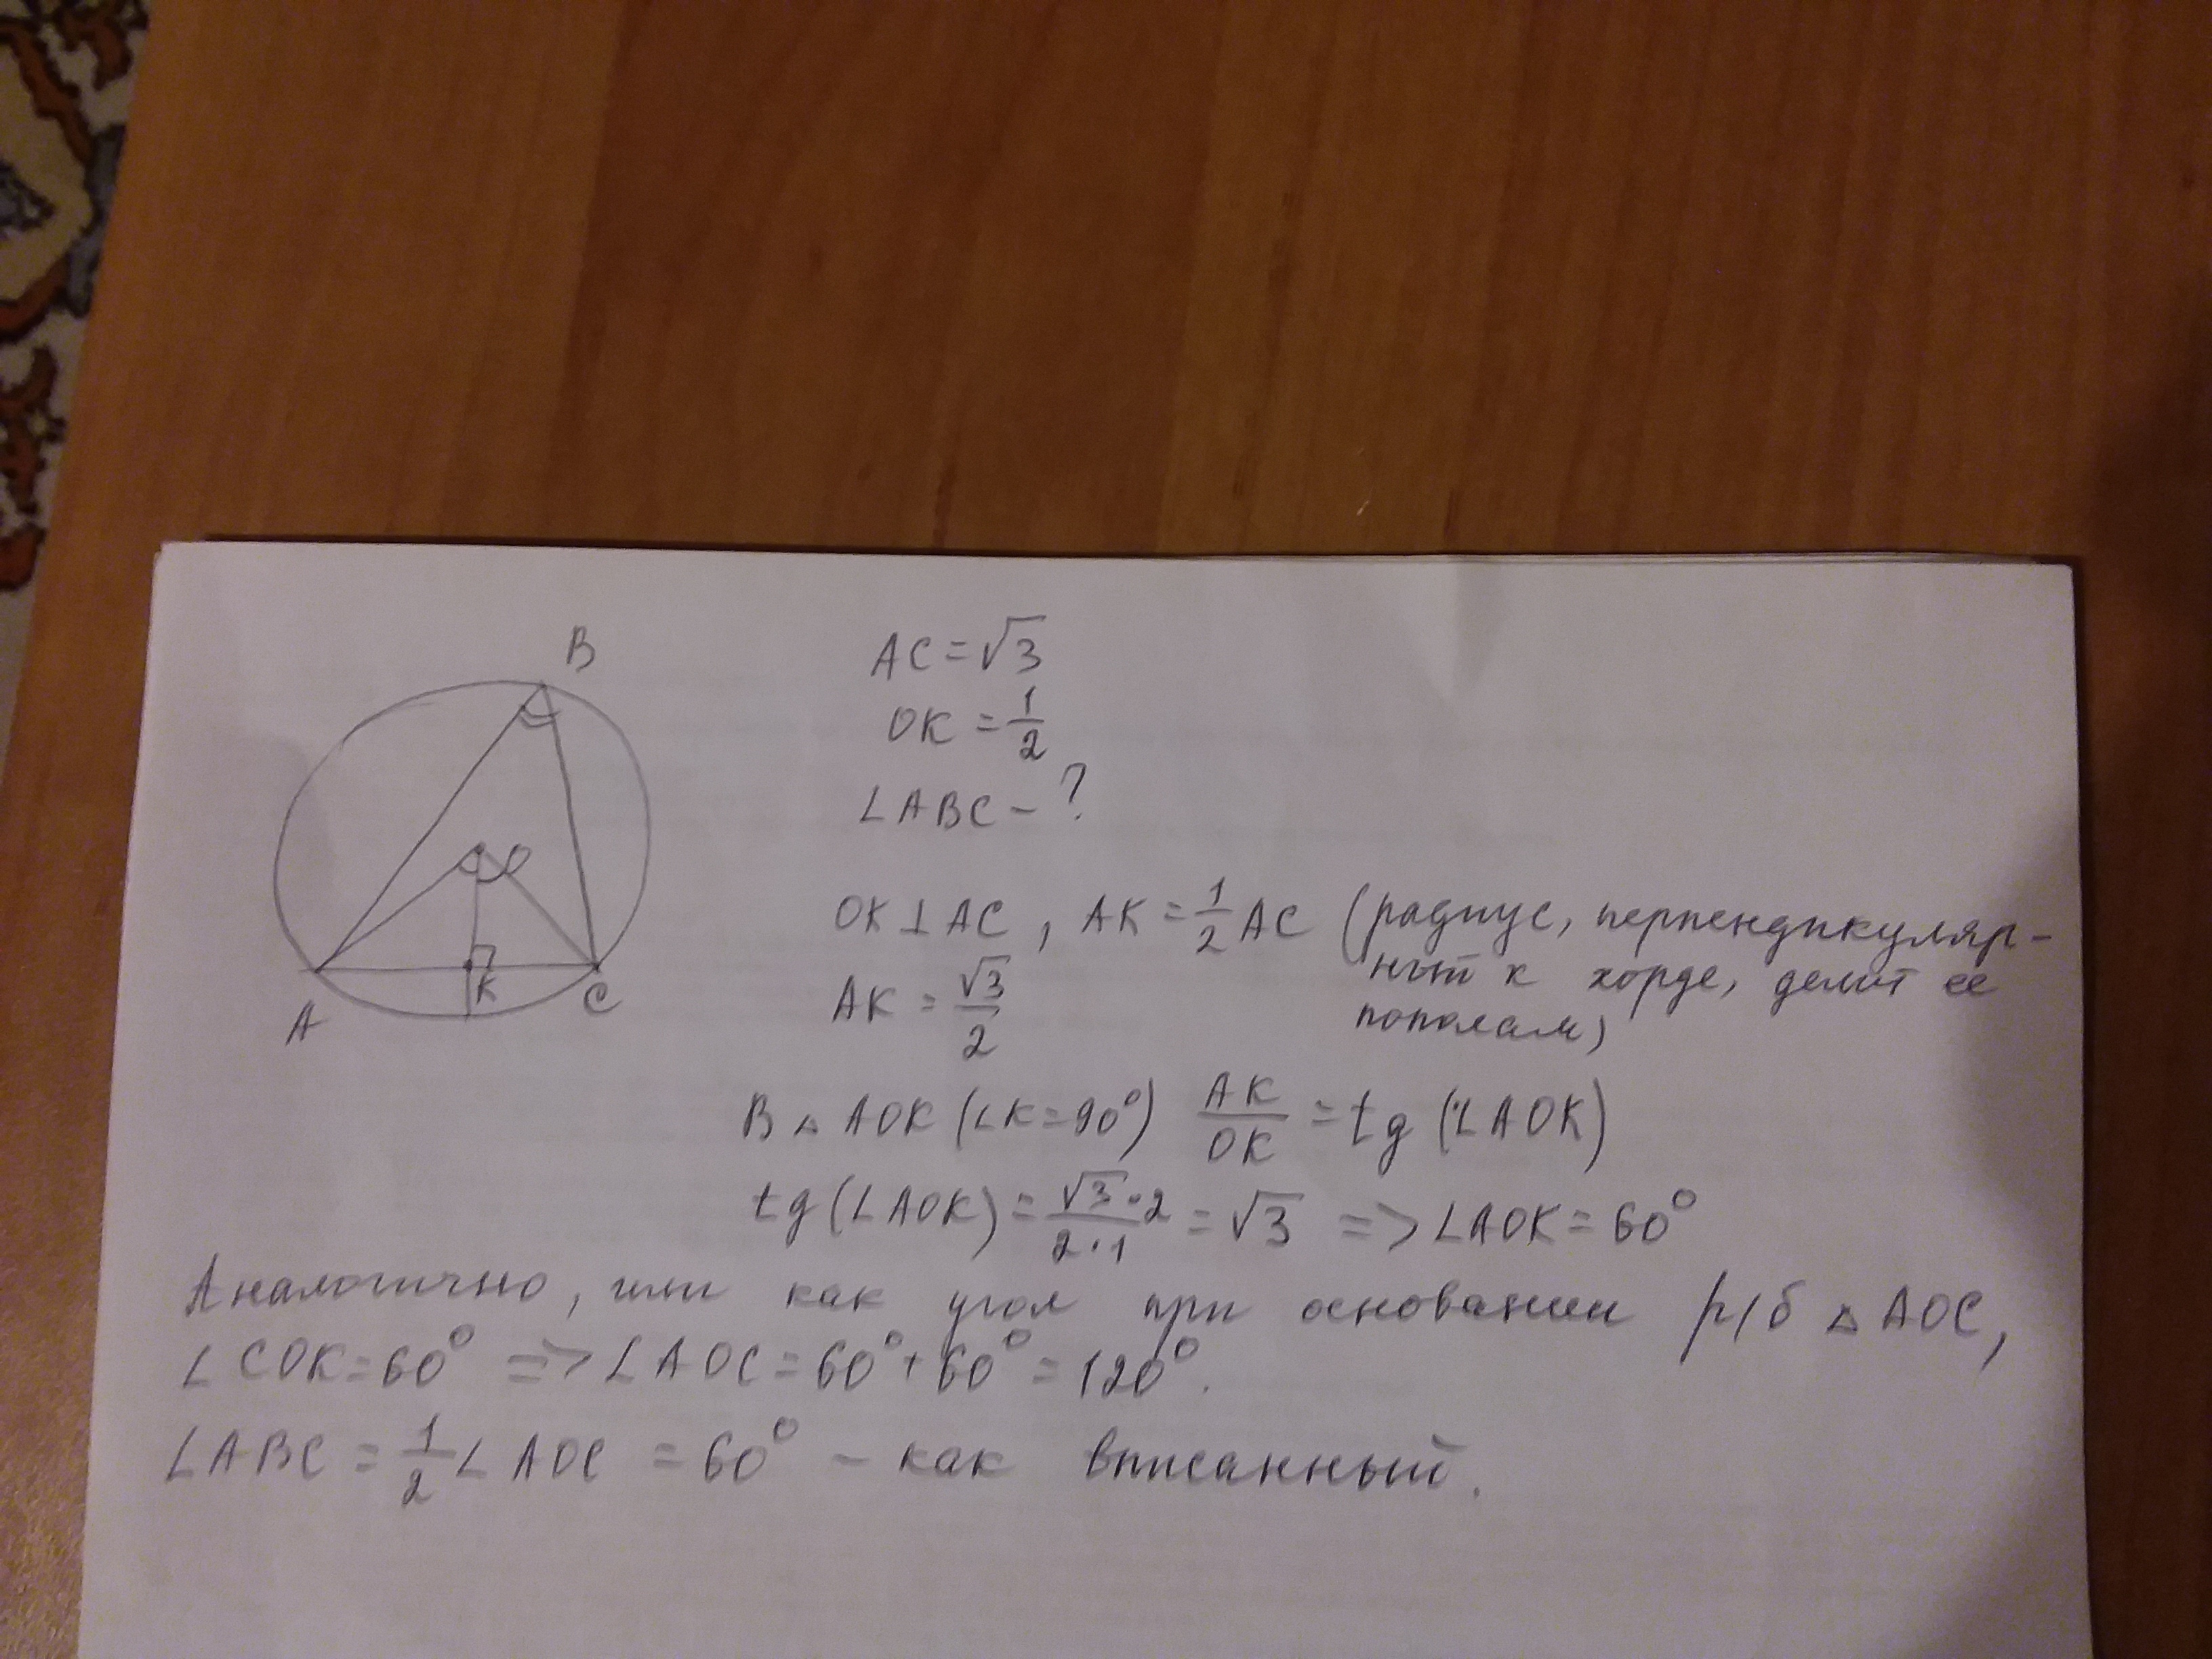 B
O
K
A
C
AC = √3
OK = 1/2
∠ABC – ?
OK ⊥ AC, AK = 1/2 AC (радиус, перпендикуляр-
ный к хорде, делит ее
пополам)
AK = √3/2
В △ AOK (∠K = 90°) AK/OK = tg (∠AOK)
tg (∠AOK) = √3·2/2·1 = √3 => ∠AOK = 60°
Аналогично, или как угол при основании р/б △ AOC,
∠COK = 60° => ∠AOC = 60° + 60° = 120°.
∠ABC = 1/2 ∠ AOC = 60° – как вписанный.